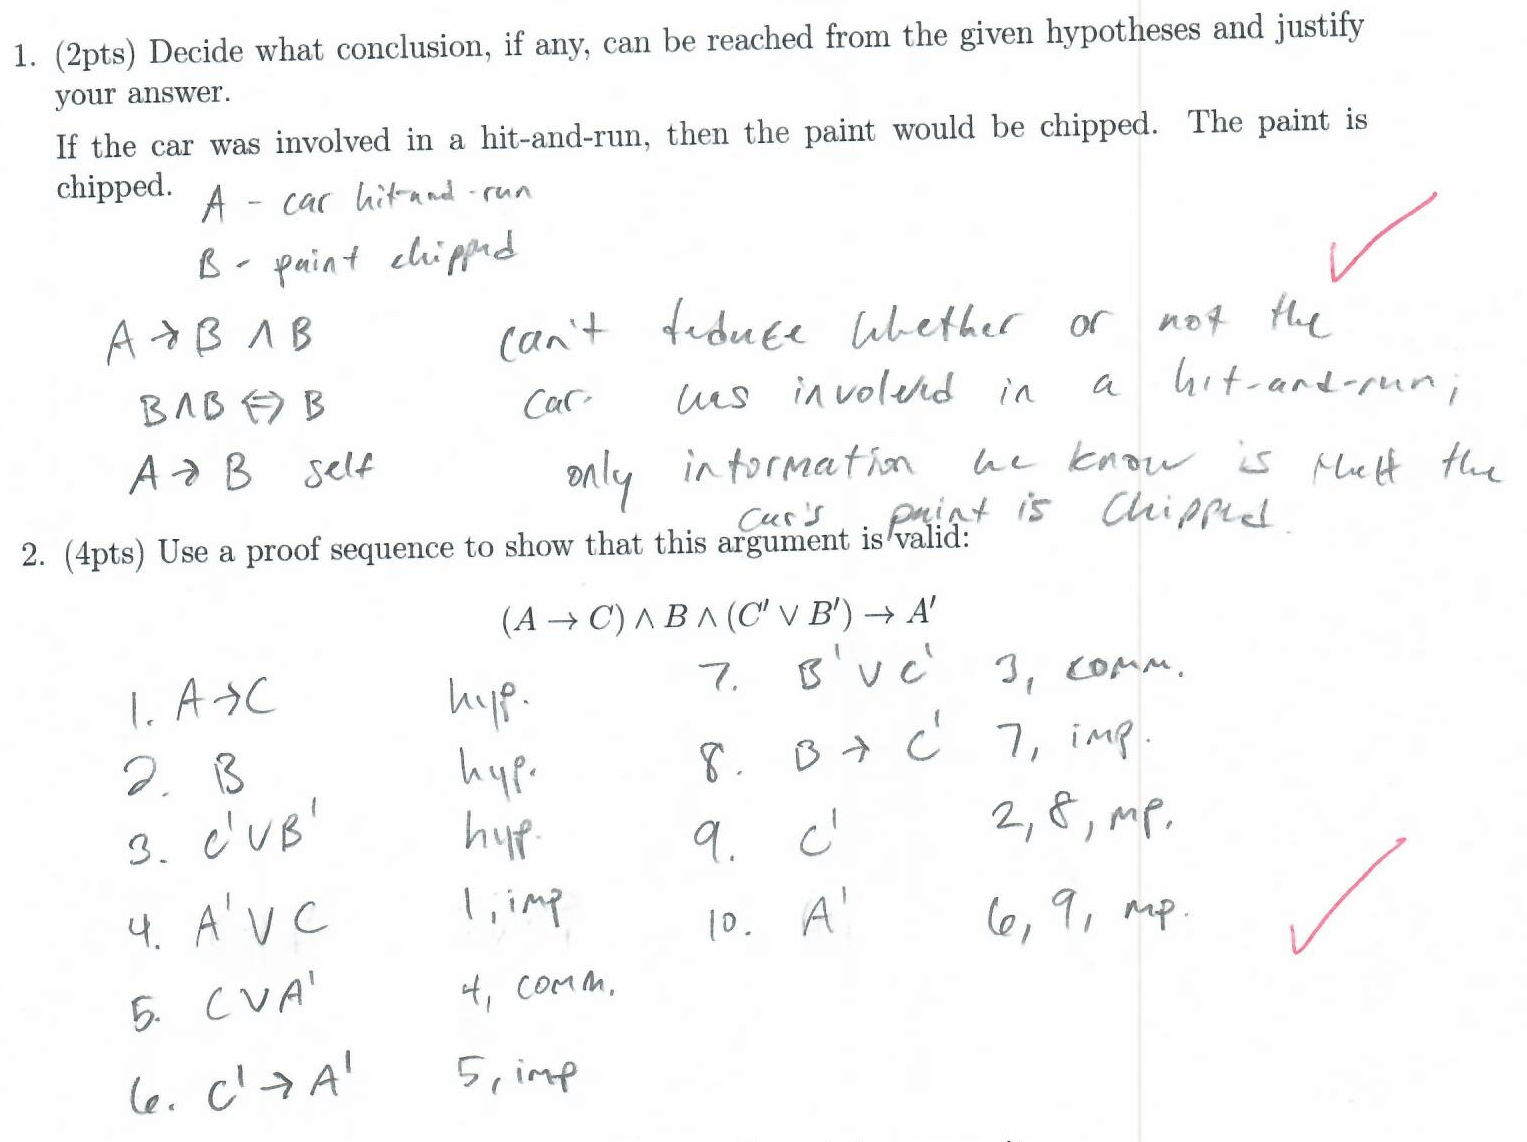 1. (2pts) Decide what conclusion, if any, can be reached from the given hypotheses and justify
your answer.
If the car was involved in a hit-and-run, then the paint would be chipped. The paint is
chipped.
A - car hit-and-run
B - paint chipped
A → B ∧ B
B ∧ B ⇔ B
A → B self
can't deduce whether or not the
car was involved in a hit-and-run;
only information we know is that the
car's paint is chipped.
2. (4pts) Use a proof sequence to show that this argument is valid:
(A → C) ∧ B ∧ (C' ∨ B') → A'
1. A → C hyp.
2. B hyp.
3. C' ∨ B' hyp.
4. A' ∨ C 1, imp
5. C ∨ A' 4, comm.
6. C' → A' 5, imp
7. B' ∨ C' 3, comm.
8. B → C' 7, imp.
9. C' 2, 8, mp.
10. A' 6, 9, mp.